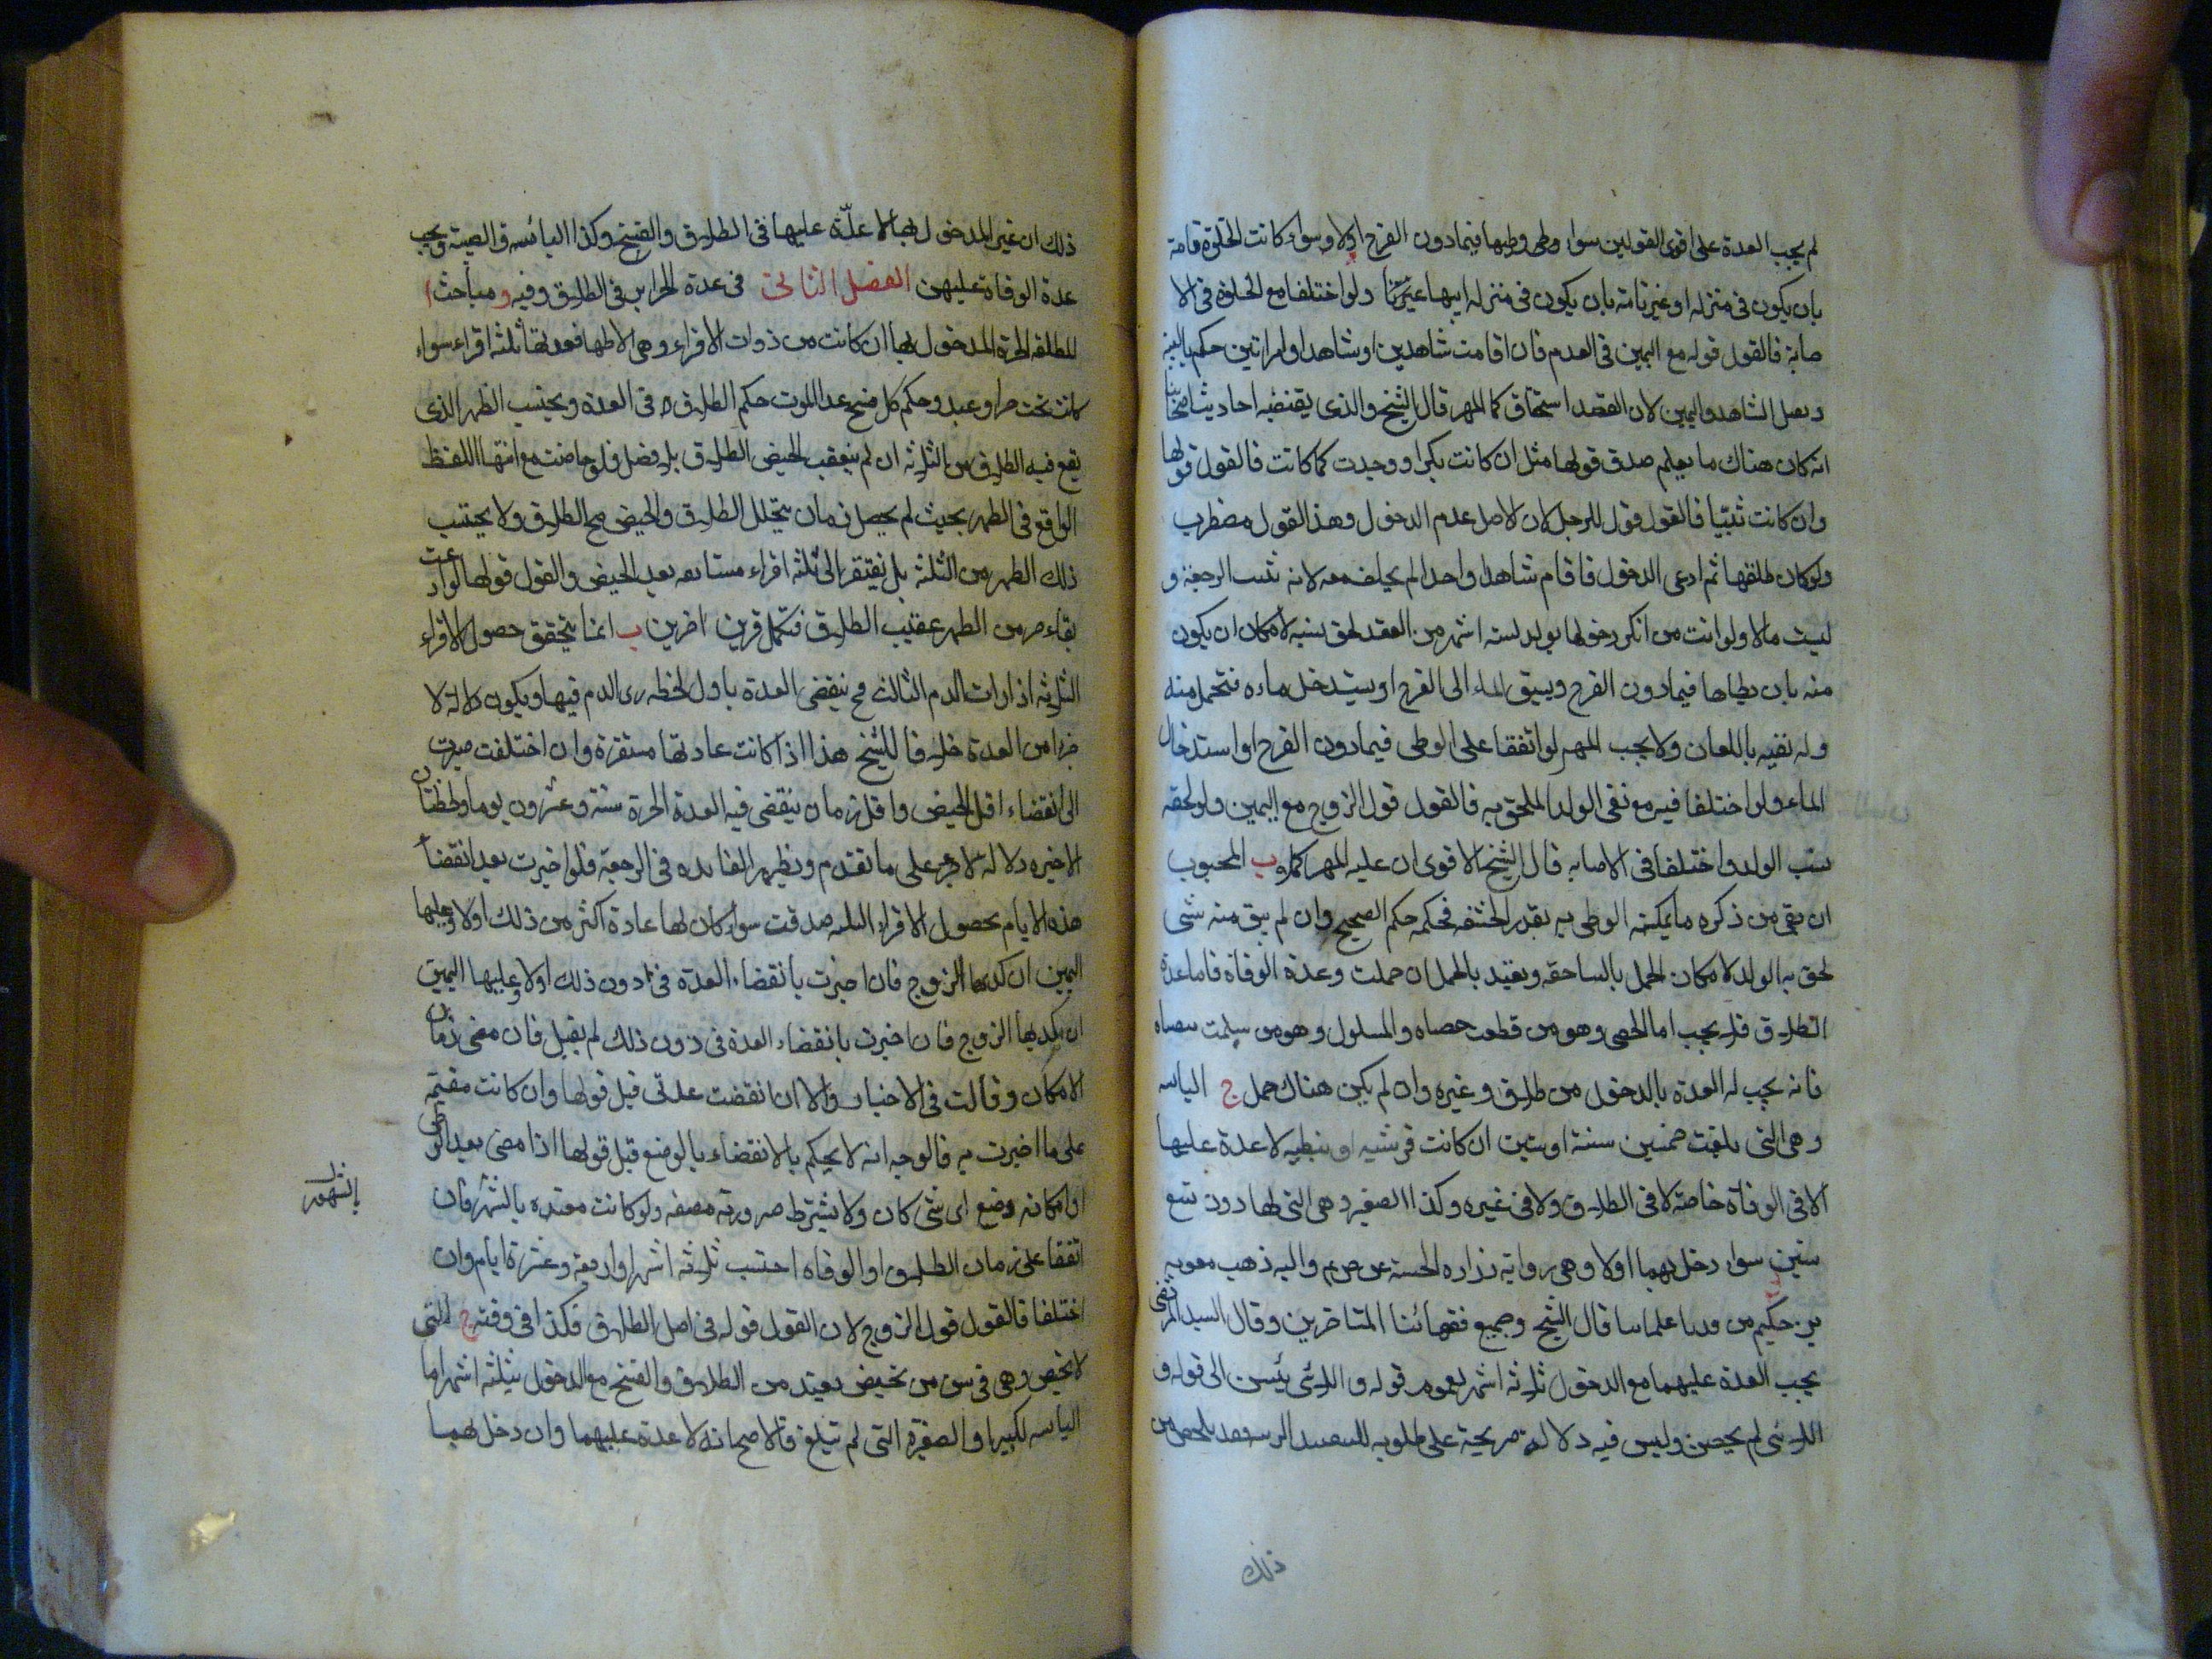 لم يجب العدة على اقوى القولين سواء وطى وطيها فيمادون الفرج اولا وسواء كانت الخلوة تامة
بان يكون فى منزله او غير تامة بان يكون فى منزله ابيها ولو اختلفا مع الخلوة فى الا
صابة فالقول قوله مع اليمين فى العدم فان اقامت شاهدين او شاهدا وامراتين حكم بالبينة
وبعمل الشاهد واليمين لان القصد استحقاق كما المهر قال الشيخ والذى يقتضيه احاديث اصحابنا
انه كان هناك ما يعلم صدق قولها مثل ان كانت بكرا ووجدت كما كانت فالقول قولها
وان كانت ثيبا فالقول قول للرجل لان الاصل عدم الدخول وهذا القول مضطرب
ولو كان طلقها ثم ادعى الدخول فاقام شاهدا واحدا لم يحلف معه لانه تثبت الرجعة و
ليست مالا ولو اتت من انكر دخولها بولد لستة اشهر من العقد لحق بنسبه لامكان ان يكون
منه بان يطاها فيمادون الفرج ويسبق الماء الى الفرج او يستدخل ماءه فتحمل منه
وله نفيه باللعان ولا يجب المهر لو اتفقا على الوطى فيمادون الفرج او استدخال
الماء ولو اختلفا فيه مع نفى الولد الملحق به فالقول قول الزوج مع اليمين ولو لحقه
نسب الولد واختلفا فى الاصابه قال الشيخ الاقوى ان عليه المهر كملا ب المجبوب
ان بقى من ذكره ما يمكنه الوطى به بقدر الحشفه فحكمه حكم الصحيح وان لم يبق منه شى
لحق به الولد لامكان الحمل بالساحقه وتعتد بالحمل ان حملت وعدة الوفاة فاما عدة
الطلاق فلا يجب اما الخصى وهو من قطعت خصاه والمسلول وهو من سلمت بيضتاه
فانه يجب له العدة بالدخول من طلاق وغيره وان لم يكن هناك حمل ج اليائسه
وهى التى بلغت خمسين سنة اوستين ان كانت قرشيه او نبطيه لا عدة عليها
الا فى الوفاة خاصة لا فى الطلاق ولا فى غيره وكذا الصغيره وهى التى لها دون تسع
سنين سواء دخل بهما اولا وهى رواية زراره الحسنة عن ص ع م واليه ذهب معويه
بن حكيم من قدماء علمائنا قال الشيخ وجميع فقهائنا المتاخرين وقال السيد المرتضى
يجب العدة عليهما مع الدخول ثلاثه اشهر لعموم قوله واللائى يئسن الى قوله و
اللائى لم يحضن وليس فيه دلالة صريحة على مطلوبه
ذلك
ذلك ان غير المدخول بها لا عدة عليها فى الطلاق والفسخ وكذا اليائسه والصبية ويجب
عدة الوفاة عليهن الفصل الثانى فى عدة الحراير فى الطلاق وفيه و مباحث ا
المطلقه الحرة المدخول بها ان كانت من ذوات الاقراء وهى الاطهار فعدتها ثلثة اقراء سواء
كانت تحت حر او عبد وحكم كل فسخ عدا الموت حكم الطلاق فى العدة ويحتسب الطهر الذى
يقع فيه الطلاق من الثلاثه ان لم يتعقب الحيض الطلاق بلا فصل فلو حاضت مع انتهاء اللفظ
الواقع فى الطهر بحيث لم يحصل زمان يتخلل الطلاق والحيض صح الطلاق ولا يحتسب
ذلك الطهر من الثلثة بل يفتقر الى ثلثه اقراء مستانفه بعد الحيض والقول قولها لو ادعت
بقاء جزء من الطهر عقيب الطلاق فتكمل قرءين اخرين ب انما يتحقق حصول الاقراء
الثلاثه اذا رات الدم الثالث فح ينقضى العدة باول لحظه رى الدم فيها ويكون دلالة لا
جزءا من العدة خلافا للشيخ هذا اذا كانت عادتها مستقرة وان اختلفت صبرت
الى انقضاء اقل الحيض واقل زمان ينقضى فيه العدة الحرة ستة وعشرون يوما ولحظتان
الاخيره دلالة لا جزء على ما تقدم ويظهر الفائده فى الرجعة فلو اخبرت بعد انقضاء
هذه الايام بحصول الاقراء الثلثه صدقت سواء كان لها عادة اكثر من ذلك اولا وعليها
اليمين ان كذبها الزوج فان اخبرت بانقضاء العدة فى دون ذلك اولا وعليها اليمين
ان كذبها الزوج فان اخبرت بانقضاء العدة فى دون ذلك لم يقبل فان مضى زمان
الامكان وقالت فى الاخبار والا ان انقضت عدتى قبل قولها وان كانت مقيمة
على ما اخبرت به فالوجه انه لا يحكم بالانقضاء بالوضع قبل قولها اذا مضى بعد الوطى
او امكانه وضع اى شى كان ولا يشترط صرورته مضغه ولو كانت معتده بالشهر فان
بالشهور
اتفقا على زمان الطلاق او الوفاه احتسب ثلاثه اشهر او اربعة وعشرة ايام وان
اختلفا فالقول قول الزوج لان القول قوله فى اصل الطلاق فكذا فى وقته ج التى
لا تحيض وهى فى سن من تحيض تعتد من الطلاق والفسخ مع الدخول بثلثه اشهر اما
اليائسه لكبرها والصغيرة التى لم تبلغ فالاصح انه لا عدة عليهما وان دخل بهما